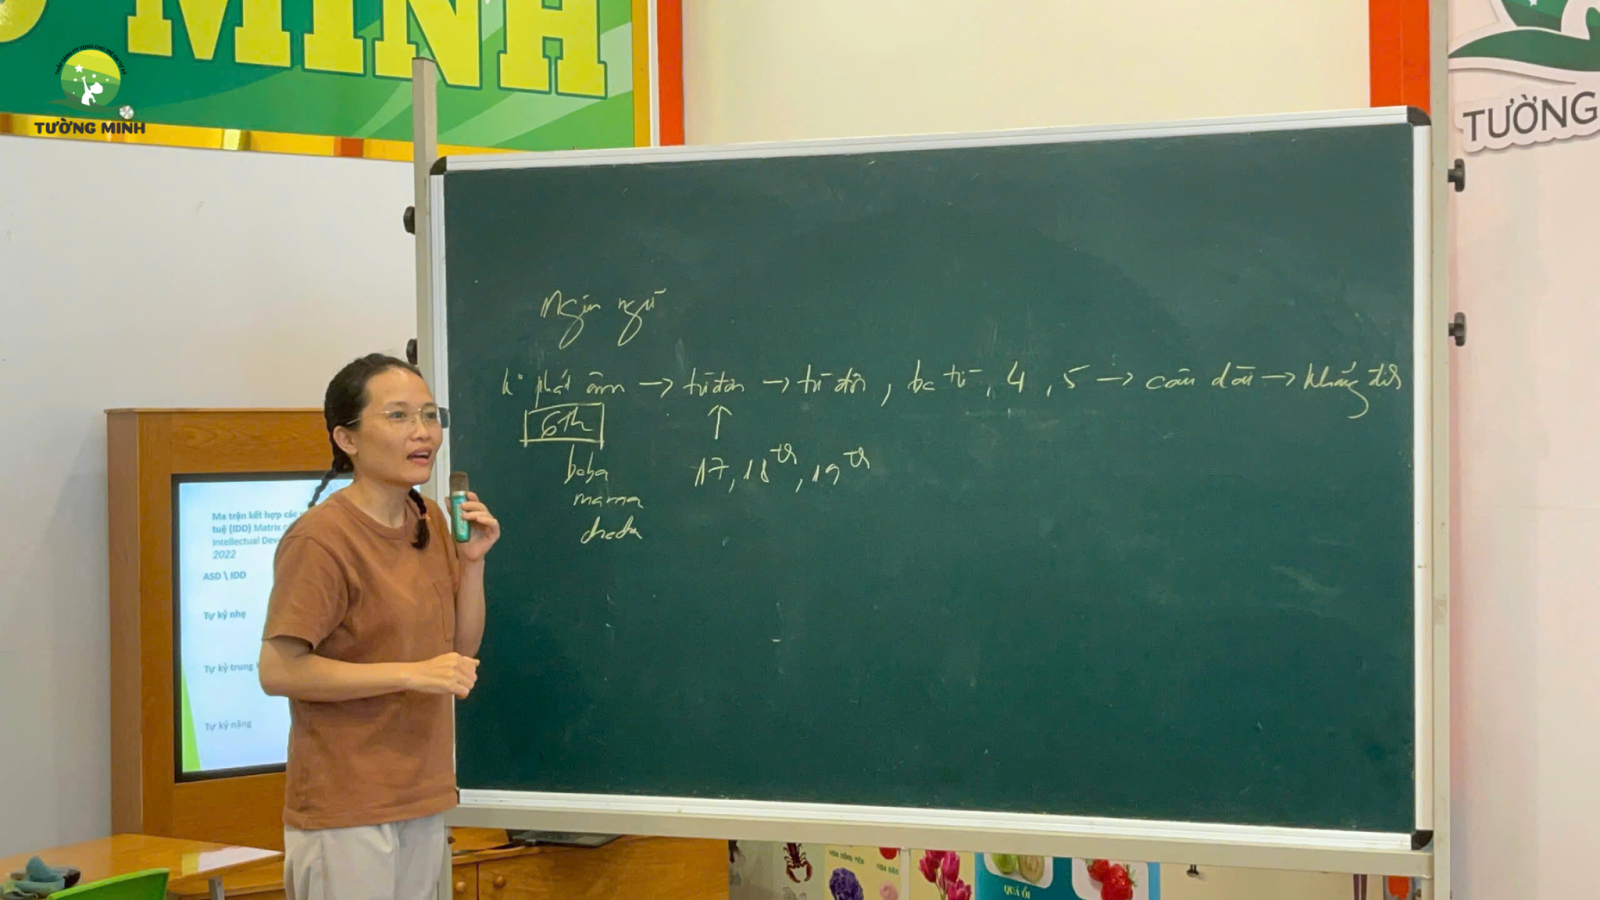 MINH
TƯỜNG MINH
TƯỜNG
Ngôn ngữ
k° phát âm → từ đơn → từ đôi, ba từ, 4, 5 → câu dài →
6th
baba
mama
17, 18th, 19th
Ma trận kết hợp các
tuệ (IDD) Matrix
Intellectual Dev
2022
ASD \ IDD
Tự kỷ nhẹ
Tự kỷ trung
Tự kỷ nặng
QUẢ ỔI